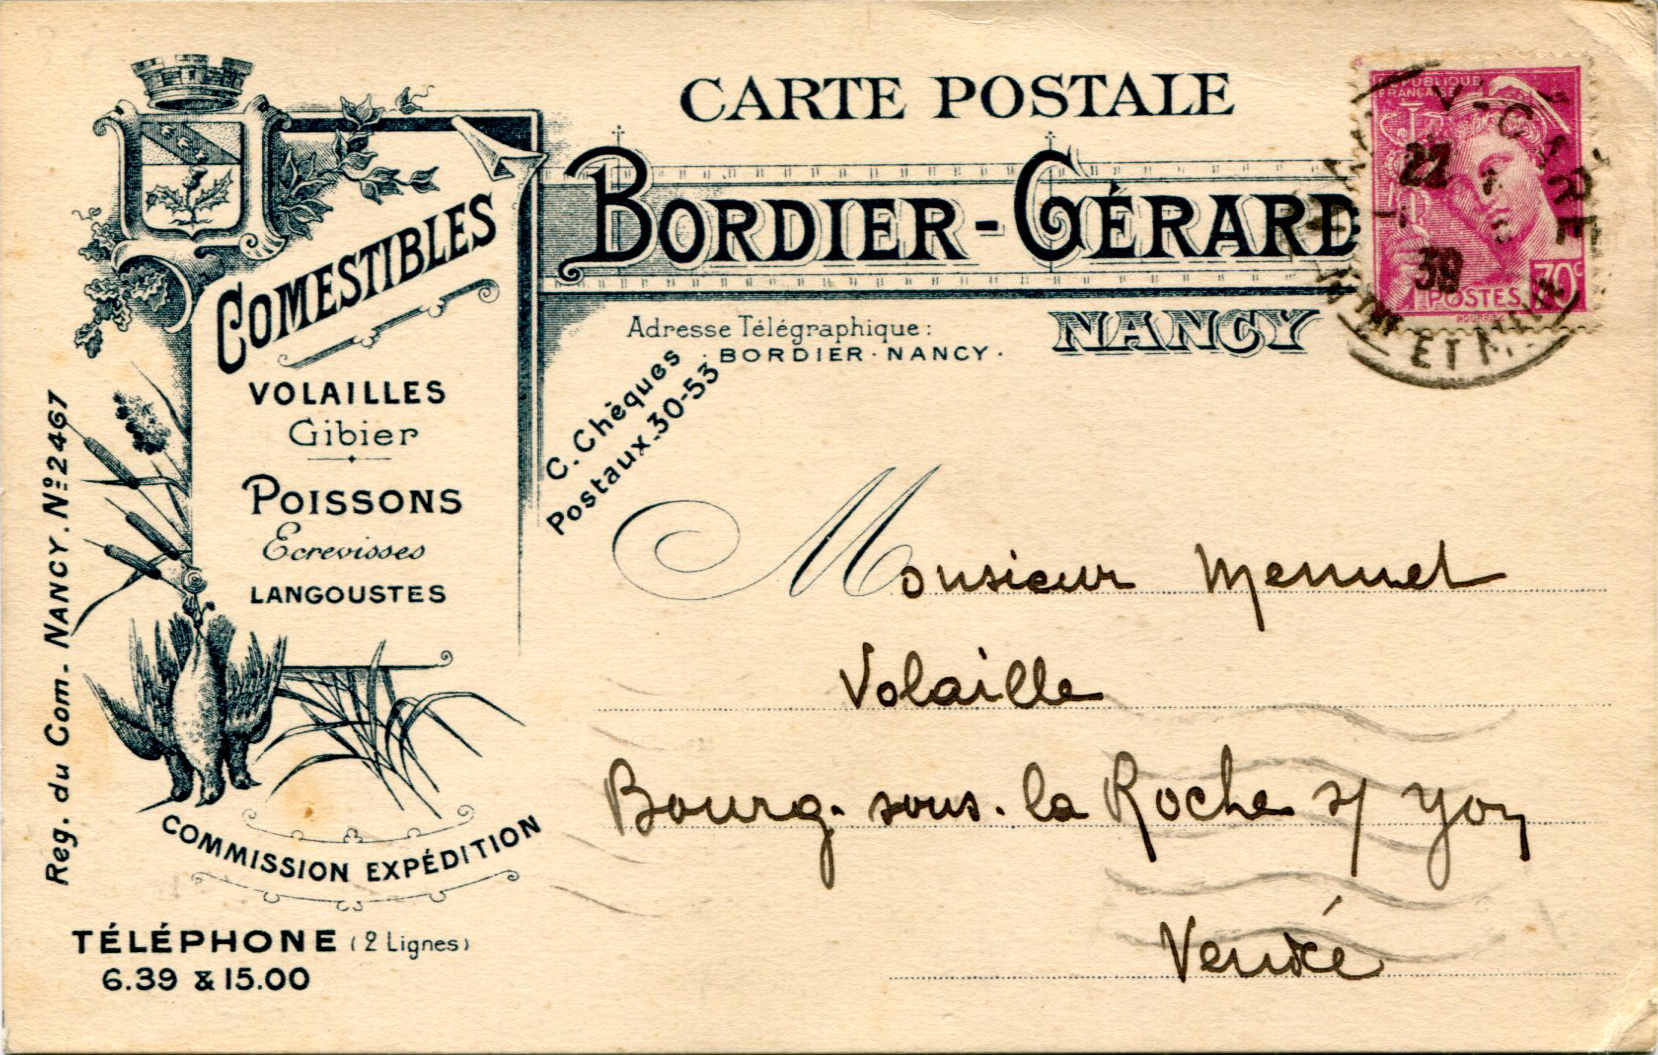 CARTE POSTALE
BORDIER-GÉRARD
NANCY
Adresse Télégraphique:
BORDIER·NANCY·
C. Chèques
Postaux.30-53
COMESTIBLES
VOLAILLES
Gibier
POISSONS
Ecrevisses
LANGOUSTES
COMMISSION EXPÉDITION
TÉLÉPHONE (2 Lignes)
6.39 & 15.00
Reg. du Com. NANCY. No: 2467
RÉPUBLIQUE
FRANÇAISE
POSTES 70c
22
1
39
ET M
Monsieur Mennet
Volaille
Bourg. sous. la Roche s/ Yon
Vendée